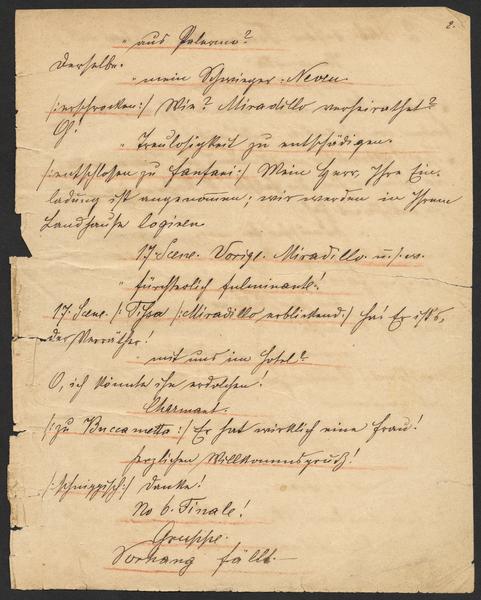 2.
" aus Palermo?
Derselbe.
" mein Schwieger-Neven.
/:erschrocken:/ Wie? Miradillo verheirathet?
O!
" Treulosigkeit zu entschädigen.
/:entschlossen zu Fanfani:/ Mein Herr, Ihre Ein-
ladung ist angenommen; wir werden in Ihrem
Landhause logiren.
17 Scene. Vorige. Miradillo. u. s. w.
" fürchterlich fulminante!
17. Scene. /:Tissa /:Miradillo erblickend:/ ha! Er ist's,
der Verräther!
" mit uns im Hotel?
O, ich könnte ihn erdolchen!
Charmant.
/:zu Buccametta:/ Er hat wirklich eine Frau!
herzlichen Willkommensgruß!
/:schnippisch:/ Danke!
No 6. Finale!
Gruppe.
Vorhang fällt.